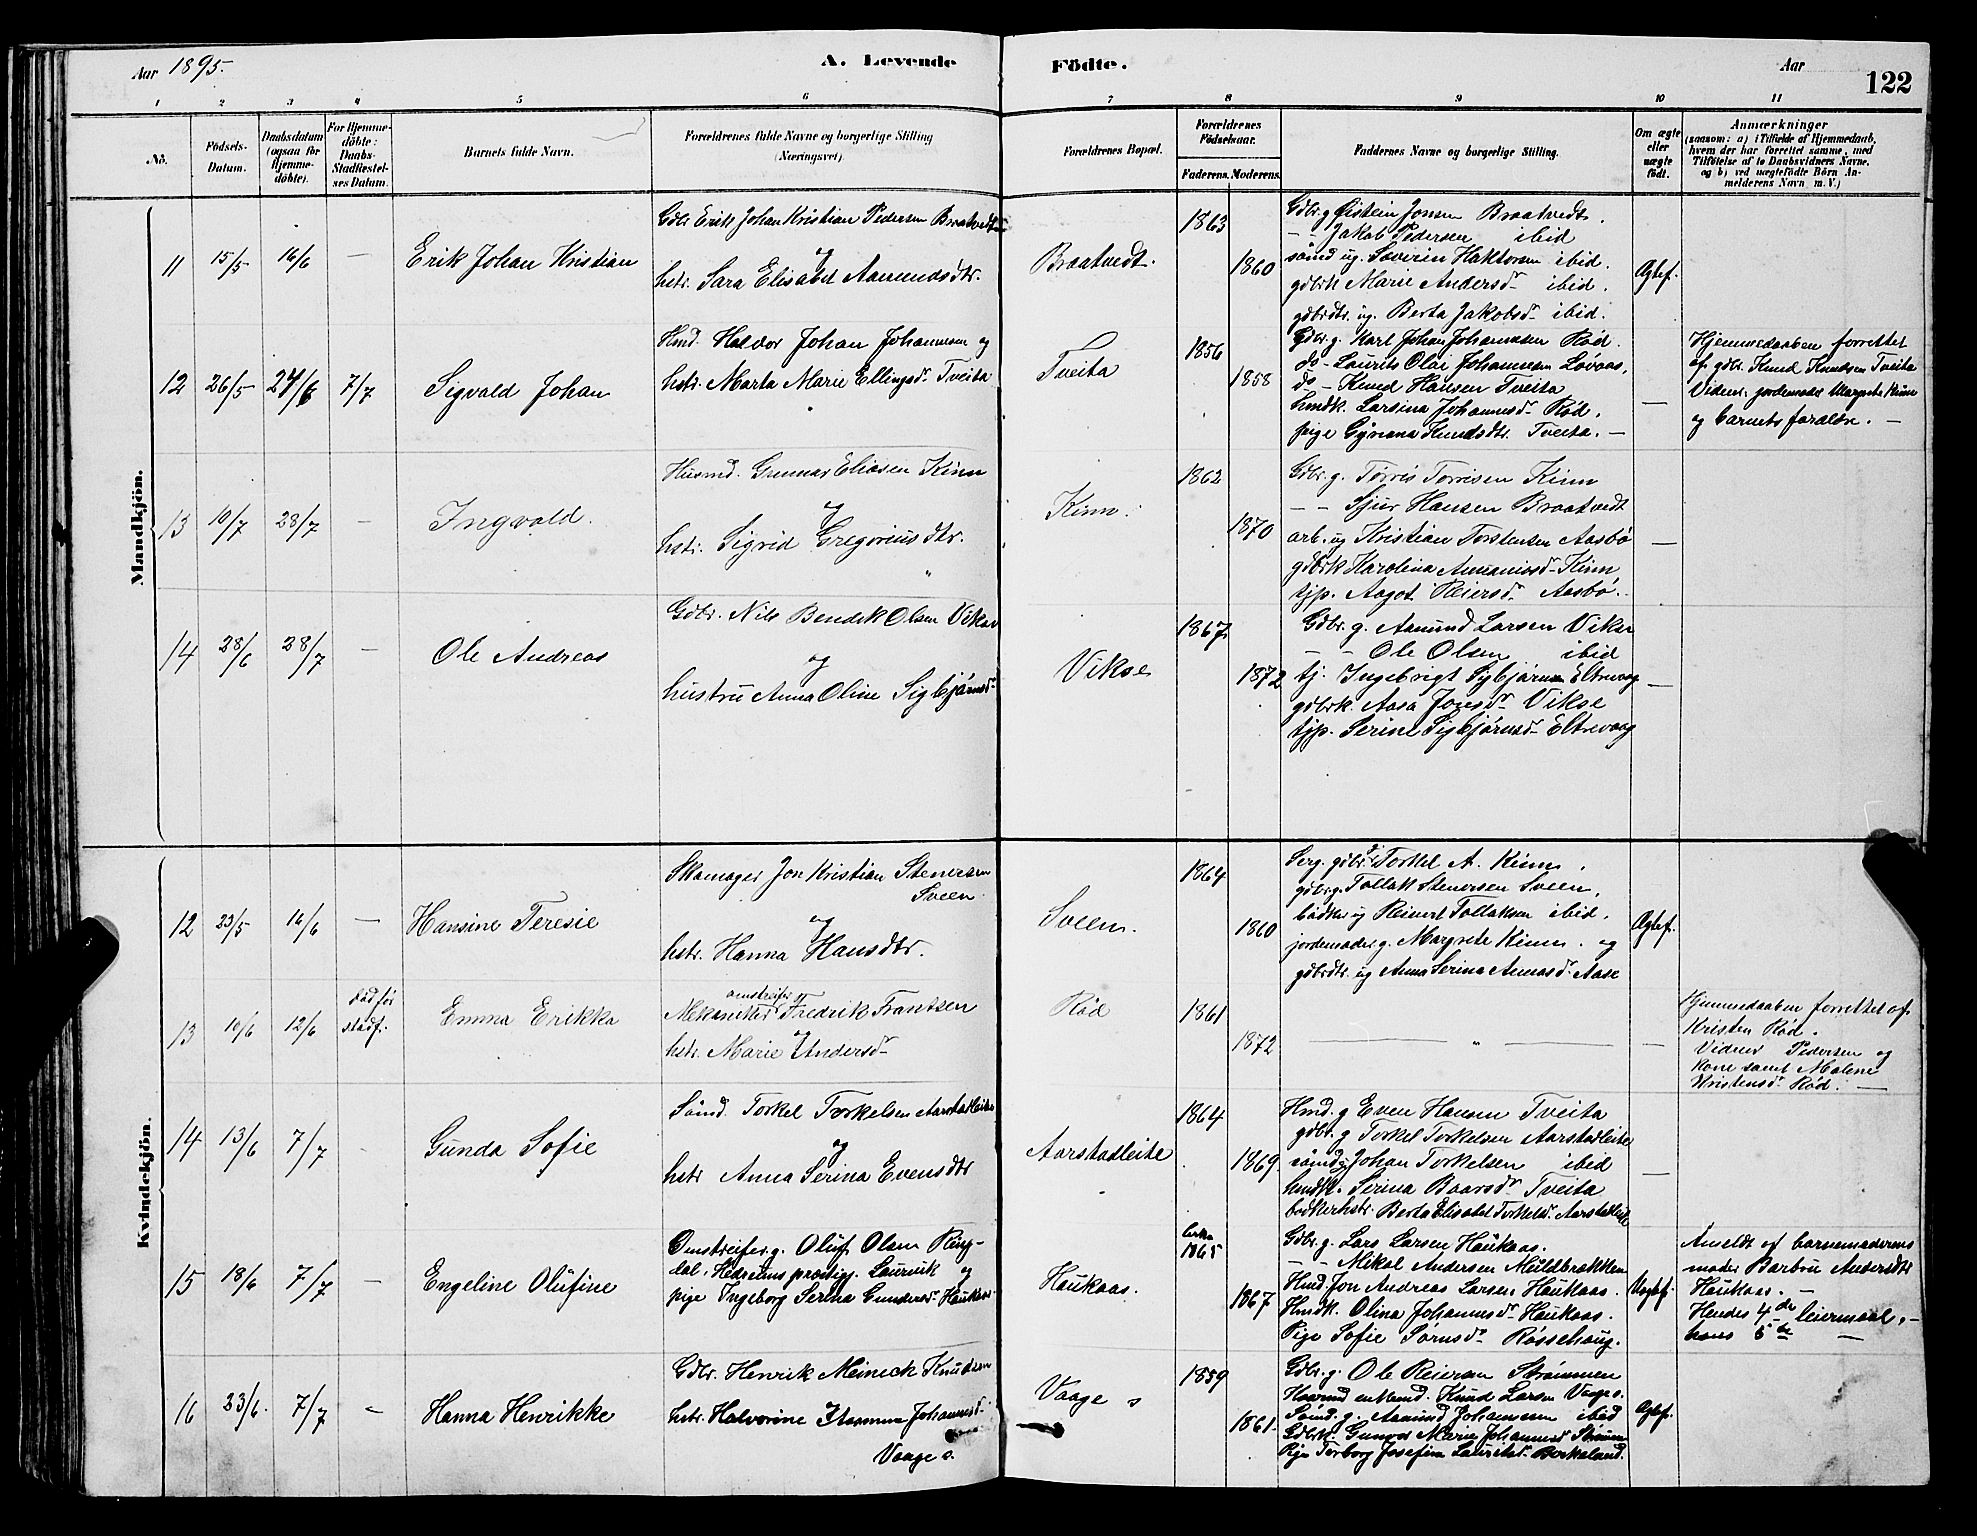 Aar 1895.
A. Levende
Födte.
Aar
122
1 2 3 4 5 6 7 8 9 10 11
No.
Födsels-Datum.
Daabsdatum (ogsaa for Hjemme-döbte).
For Hjemme-döbte: Daabs-Stadfæstel-ses Datum.
Barnets fulde Navn.
Forældrenes fulde Navne og borgerlige Stilling (Næringsvei).
Forældrenes Bopæl.
Forældrenes Födselsaar.
Faderens. Moderens.
Faddernes Navne og borgerlige Stilling.
Om ægte eller uægte födt.
Anmærkninger
(saasom: a) i Tilfælde af Hjemmedaab,
hvem der har forrettet samme, med
Tilföielse af to Daabsvidners Navne,
og b) ved uægtefödte Börn An-
melderens Navn m. V.)
Mandkjön.
11 15/5 16/6 — Erik Johan Kristian
Gdbr Erik Johan Kristian Pedersen Braatvedt
og
hstr. Sara Elisabet Aamundsdtr.
Braatvedt.
1863
1860
Gdbr. g Øistein Jonsen Braatvedt.
- - Jakob Pedersen ibid
sömd ug. Severin Haktorsen ibid.
gdbrk Marie Andersdr ibid.
gdbrdtr. ug. Berta Jakobsdr ibid.
Ægtef.
12 26/5 27/6 7/7 Sigvald Johan
Hmd. Haldor Johan Johannesen og
hstr. Marta Marie Ellingsdr Tveita
Tveita
1856
1858
Gdbr. g. Karl Johan Johannesen Rød.
do - Laurits Olai Johannesen Løvaas.
do - Knud Hansen Tveita
hmdk. Larsina Johannesdr Rød.
pige Gyriana Knudsdtr. Tveita. —
—
Hjemmedaaben forrettet
af gdbr. Knud Knudsen Tveita
Vidner: jordemoder Margrete Kinn
og barnets forældre. —
13 10/7 28/7 — Ingvald.
Husmd. Gunnar Eliasen Kinn
og
hstr. Sigrid Gregoriusdtr.
Kinn.
1862
1870
Gdbr. g. Torris Torrisen Kinn
- - Sjur Hansen Braatvedt
arb. ug Kristian Torstensen Aasbö
gdbrk Karolina Ananiasdr Kinn
tjp. Aagot Reiersdr Aasbö.
—
14 28/6 28/7 — Ole Andreas
Gdbr. Nils Bendik Olsen Vikse
og
hustru Anna Oline Sigbjörnsdr
Vikse
1867
1872
Gdbr. g. Aamund Larsen Vikse
- - Ole Olsen ibid
tj. Ingebrigt Sigbjörnsen Eltrevaag
gdbrk. Aasa Jonsdr Vikse
tjp. Serine Sigbjörnsdr Eltrevaag
—
Kvindekjön.
12 23/5 16/6 — Hansine Teresie
Skomager Jon Kristian Stenersen
Sveen
og
hstr. Hanna Hansdtr.
Sveen.
1864
1860
Serg. gdbr. g Torkel A. Kinn.
gdbr. g. Tollak Stenersen Sveen.
bödker ug Reinert Tollaksen ibid.
jordemoder g. Margrete Kinn. og
gdbrdtr. ug Anna Serina Annasdr Aase
Ægtef.
13 10/6 12/6 død før stadf. Emma Erikka
omstreifer
Mekaniker Fredrik Frantsen
og
hstr. Marie Andersdr
Rød
1861
1872
— " —
—
Hjemmedaaben forrettet af
Kristen Rød.
Vidner Pedersen og
kone samt Malene
Kristensdr Rød. —
14 13/6 7/7 - Gunda Sofie
Sömd. Torkel Torkelsen Aarstadleite
og
hstr Anna Serina Evensdtr
Aarstadleite
1864
1869
Hmd. g Even Hansen Tveita
gdbr. g Torkel Torkelsen Aarstadleite
sömd g Johan Torkelsen ibid
hmdk. Serina Baarsdr Tveita
bødkerhstr. Berta Elisabet Torkelsdr. Aarstadleite
—
15 18/6 7/7 — Engeline Olufine
Omstreifer g. Oluf Olsen Ring-
dal, Hedrums præstegj. Laurvik og
pige Ingeborg Serina Gundersdr Haukaas
Haukaas.
cirka
1865
1867
Gdbr. g. Lars Larsen Haukaas.
- - Mikal Andersen Mildbrakken
Hmd. Jon Andreas Larsen Haukaas.
Hmdk. Olina Johannesdr Haukaas.
Pige Sofie Sörnsdr Røssehaug.
Uægtef.
Anmeldt af barnemoderens
moder Barbru Andersdtr
Haukaas. —
Hendes 4de leiermaal, —
hans 5te —
16 23/6. 7/7 - Hanna Henrikke
Gdbr. Henrik Meineck Knudsen
hstr. Halvorine Johannesdr
Vaage s.
Vaage s
1859
1861.
Gdbr. g. Ole Reiersen Strømmen
Knud Larsen Vaage s.
Sömd. g. Aamund Johannesen ibid
Gdbrk. Gunvor Marie Johannesdr Strømmen
Pige Torborg Josefine Lauritsdr Birkeland.
Ægtef.